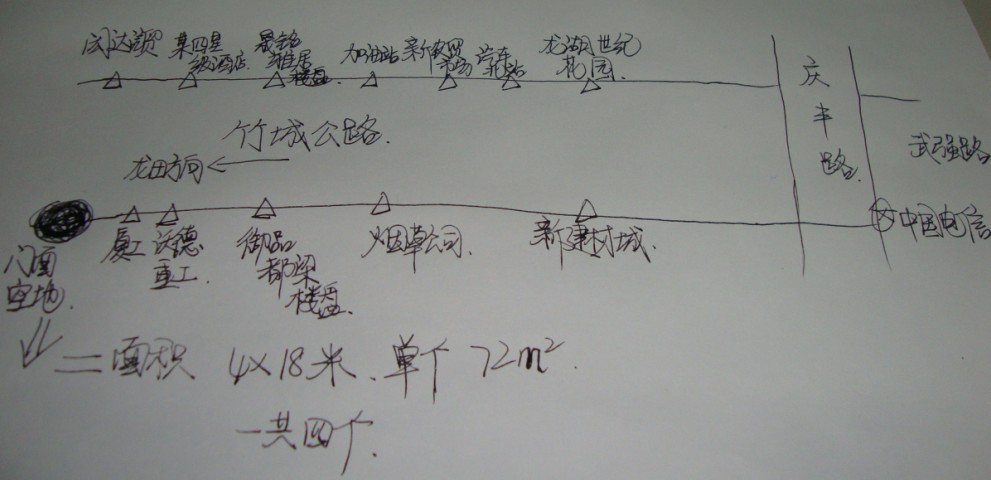 某四星
级酒店
楼盘.
加油站
汽车
龙湖世纪
花园.
庆丰路.
武强路
竹城公路.
龙田方向←
厦工
沃德
重工.
御品
都梁
楼盘.
烟草公司.
新建材城.
中国电信
门面
空地.
=面积 4×18米、单个 72m².
一共四个.